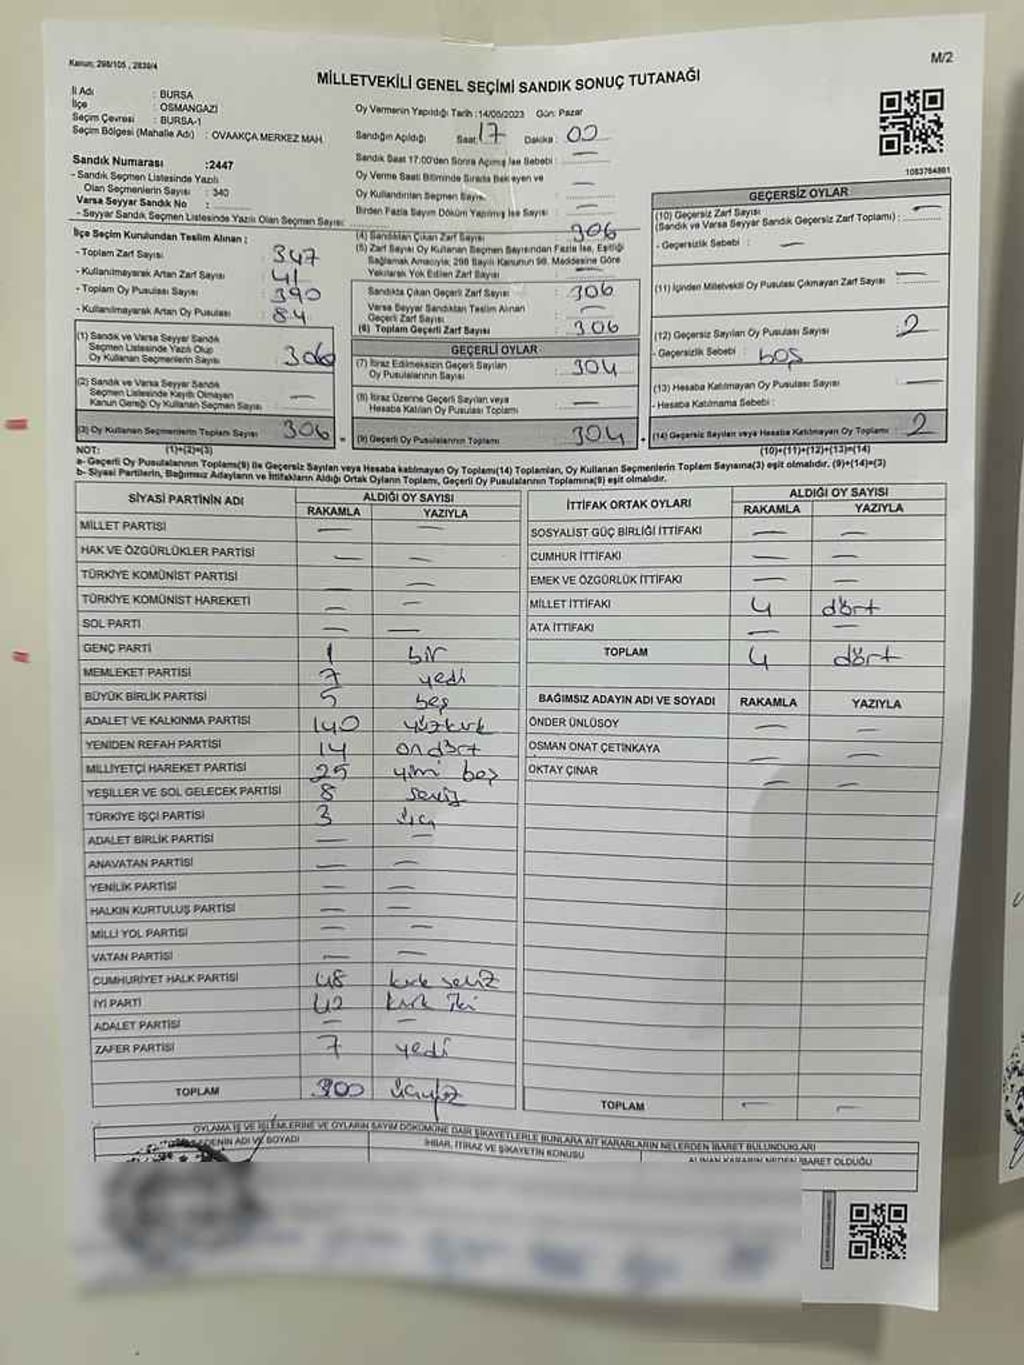 Kanun; 298/105 , 2839/4
M/2
MİLLETVEKİLİ GENEL SEÇİMİ SANDIK SONUÇ TUTANAĞI
İl Adı : BURSA
İlçe : OSMANGAZİ
Seçim Çevresi : BURSA-1
Seçim Bölgesi (Mahalle Adı) : OVAAKÇA MERKEZ MAH.
Sandık Numarası :2447
- Sandık Seçmen Listesinde Yazılı
Olan Seçmenlerin Sayısı : 340
Varsa Seyyar Sandık No :
- Seyyar Sandık Seçmen Listesinde Yazılı Olan Seçmen Sayısı:
Oy Vermenin Yapıldığı Tarih :14/05/2023 Gün: Pazar
Sandığın Açıldığı Saat: 17 Dakika : 00
Sandık Saat 17:00'den Sonra Açılmış İse Sebebi : —
Oy Verme Saati Bitiminde Sırada Bekleyen ve
Oy Kullandırılan Seçmen Sayısı. —
Birden Fazla Sayım Döküm Yapılmış İse Sayısı : —
1083764861
İlçe Seçim Kurulundan Teslim Alınan :
- Toplam Zarf Sayısı : 347
- Kullanılmayarak Artan Zarf Sayısı : 41
- Toplam Oy Pusulası Sayısı : 390
- Kullanılmayarak Artan Oy Pusulası : 84
(1) Sandık ve Varsa Seyyar Sandık
Seçmen Listesinde Yazılı Olup
Oy Kullanan Seçmenlerin Sayısı : 306
(2) Sandık ve Varsa Seyyar Sandık
Seçmen Listesinde Kayıtlı Olmayan
Kanun Gereği Oy Kullanan Seçmen Sayısı : —
(3) Oy Kullanan Seçmenlerin Toplam Sayısı : 306
(4) Sandıktan Çıkan Zarf Sayısı : 306
(5) Zarf Sayısı Oy Kullanan Seçmen Sayısından Fazla İse, Eşitliği
Sağlamak Amacıyla; 298 Sayılı Kanunun 98. Maddesine Göre
Yakılarak Yok Edilen Zarf Sayısı : —
Sandıkta Çıkan Geçerli Zarf Sayısı : 306
Varsa Seyyar Sandıktan Teslim Alınan
Geçerli Zarf Sayısı : —
(6) Toplam Geçerli Zarf Sayısı : 306
GEÇERLİ OYLAR
(7) İtiraz Edilmeksizin Geçerli Sayılan
Oy Pusulalarının Sayısı : 304
(8) İtiraz Üzerine Geçerli Sayılan veya
Hesaba Katılan Oy Pusulası Toplamı : —
= (9) Geçerli Oy Pusulalarının Toplamı : 304 +
GEÇERSİZ OYLAR
(10) Geçersiz Zarf Sayısı
(Sandık ve Varsa Seyyar Sandık Geçersiz Zarf Toplamı) : —
- Geçersizlik Sebebi : —
(11) İçinden Milletvekili Oy Pusulası Çıkmayan Zarf Sayısı : —
(12) Geçersiz Sayılan Oy Pusulası Sayısı : 2
- Geçersizlik Sebebi : boş
(13) Hesaba Katılmayan Oy Pusulası Sayısı : —
- Hesaba Katılmama Sebebi :
(14) Geçersiz Sayılan veya Hesaba Katılmayan Oy Toplamı : 2
NOT: (1)+(2)=(3) (10)+(11)+(12)+(13)=(14)
a- Geçerli Oy Pusulalarının Toplamı(9) ile Geçersiz Sayılan veya Hesaba katılmayan Oy Toplamı(14) Toplamları, Oy Kullanan Seçmenlerin Toplam Sayısına(3) eşit olmalıdır. (9)+(14)=(3)
b- Siyasi Partilerin, Bağımsız Adayların ve İttifakların Aldığı Ortak Oyların Toplamı, Geçerli Oy Pusulalarının Toplamına(9) eşit olmalıdır.
SİYASİ PARTİNİN ADI ALDIĞI OY SAYISI
RAKAMLA YAZIYLA
MİLLET PARTİSİ — —
HAK VE ÖZGÜRLÜKLER PARTİSİ — —
TÜRKİYE KOMÜNİST PARTİSİ —
TÜRKİYE KOMÜNİST HAREKETİ — —
SOL PARTİ — —
GENÇ PARTİ 1 bir
MEMLEKET PARTİSİ 7 yedi
BÜYÜK BİRLİK PARTİSİ 5 beş
ADALET VE KALKINMA PARTİSİ 140 yüzkırk
YENİDEN REFAH PARTİSİ 14 ondört
MİLLİYETÇİ HAREKET PARTİSİ 25 yirmi beş
YEŞİLLER VE SOL GELECEK PARTİSİ 8 sekiz
TÜRKİYE İŞÇİ PARTİSİ 3 üç
ADALET BİRLİK PARTİSİ — —
ANAVATAN PARTİSİ — —
YENİLİK PARTİSİ — —
HALKIN KURTULUŞ PARTİSİ — —
MİLLİ YOL PARTİSİ — —
VATAN PARTİSİ — —
CUMHURİYET HALK PARTİSİ 48 kırk sekiz
İYİ PARTİ 42 kırk iki
ADALET PARTİSİ — —
ZAFER PARTİSİ 7 yedi
TOPLAM 300 üçyüz
İTTİFAK ORTAK OYLARI ALDIĞI OY SAYISI
RAKAMLA YAZIYLA
SOSYALİST GÜÇ BİRLİĞİ İTTİFAKI — —
CUMHUR İTTİFAKI — —
EMEK VE ÖZGÜRLÜK İTTİFAKI — —
MİLLET İTTİFAKI 4 dört
ATA İTTİFAKI — —
TOPLAM 4 dört
BAĞIMSIZ ADAYIN ADI VE SOYADI RAKAMLA YAZIYLA
ÖNDER ÜNLÜSOY — —
OSMAN ONAT ÇETİNKAYA — —
OKTAY ÇINAR — —
TOPLAM — —
OYLAMA İŞ VE İŞLEMLERİNE VE OYLARIN SAYIM DÖKÜMÜNE DAİR ŞİKAYETLERLE BUNLARA AİT KARARLARIN NELERDEN İBARET BULUNDUKLARI
EDENİN ADI VE SOYADI İHBAR, İTİRAZ VE ŞİKAYETİN KONUSU ALINAN KARARIN NEDEN İBARET OLDUĞU